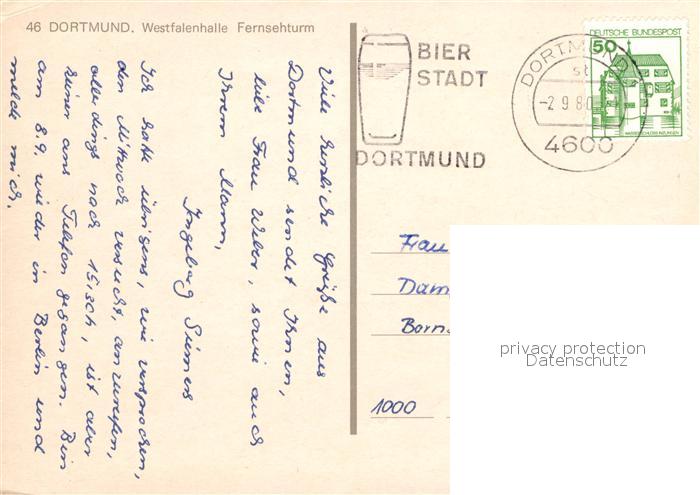 46 DORTMUND. Westfalenhalle Fernsehturm
Viele herzliche Grüße aus
Dortmund sendet Ihnen,
liebe Frau Weber, sowie auch
Ihrem Mann,
Ingeborg
Ich hatte übrigens, wie versprochen,
den Mittwoch versucht, anzurufen,
allerdings nach 15,30h, ist aber
keiner ans Telefon gegangen. Bin
am 8.9. wieder in Berlin und
melde mich.
BIER
STADT
DORTMUND
DORTMUND
-2.9.80
4600
DEUTSCHE BUNDESPOST
50
WASSERSCHLOSS INZLINGEN
Frau
Dam
Born
1000
privacy protection
Datenschutz